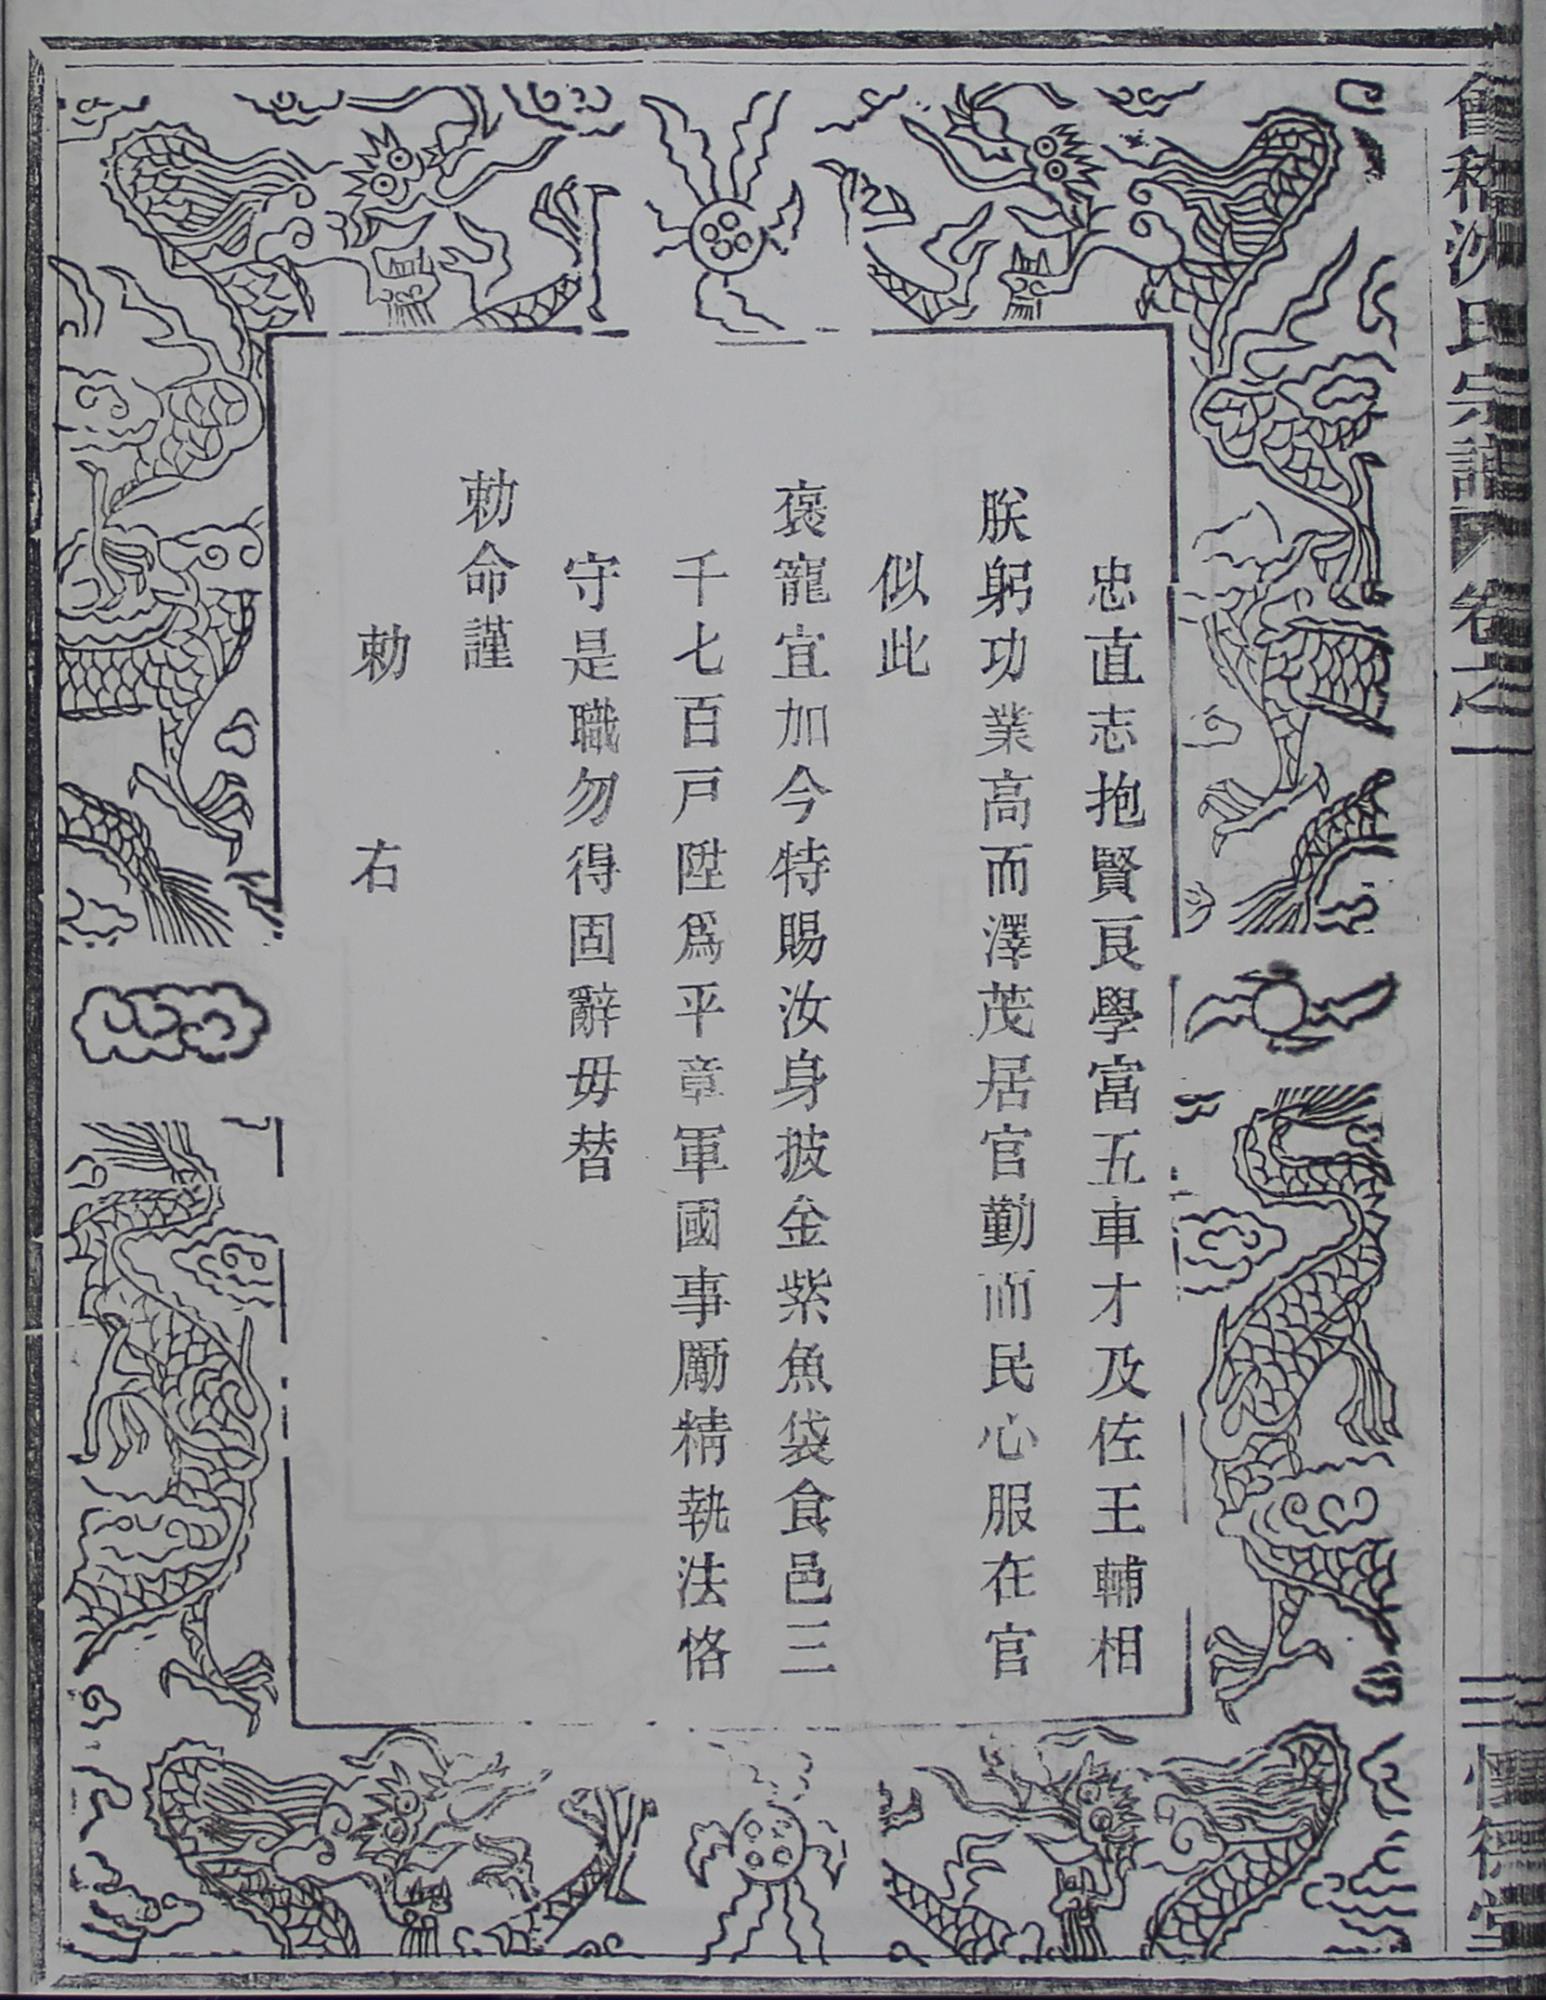 會稽沈氏宗譜 卷之一
忠直志抱賢良學富五車才及佐王輔相
朕躬功業高而澤茂居官勤而民心服在官
似此
褒寵宜加今特賜汝身披金紫魚袋食邑三
千七百戸陞爲平章軍國事勵精執法恪
守是職勿得固辭毋替
勅命謹
勅 右
德堂